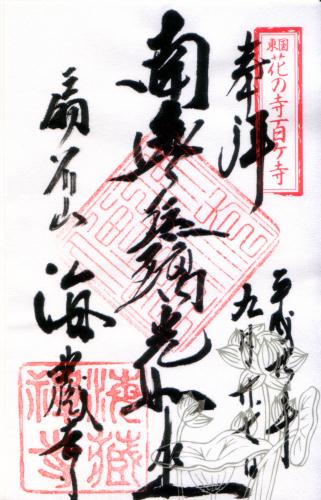 東国
花の寺百ヶ寺
奉拝
平成廿年
九月廿七日
南無瑠璃光如来
扇谷山
海蔵寺
海蔵禅寺